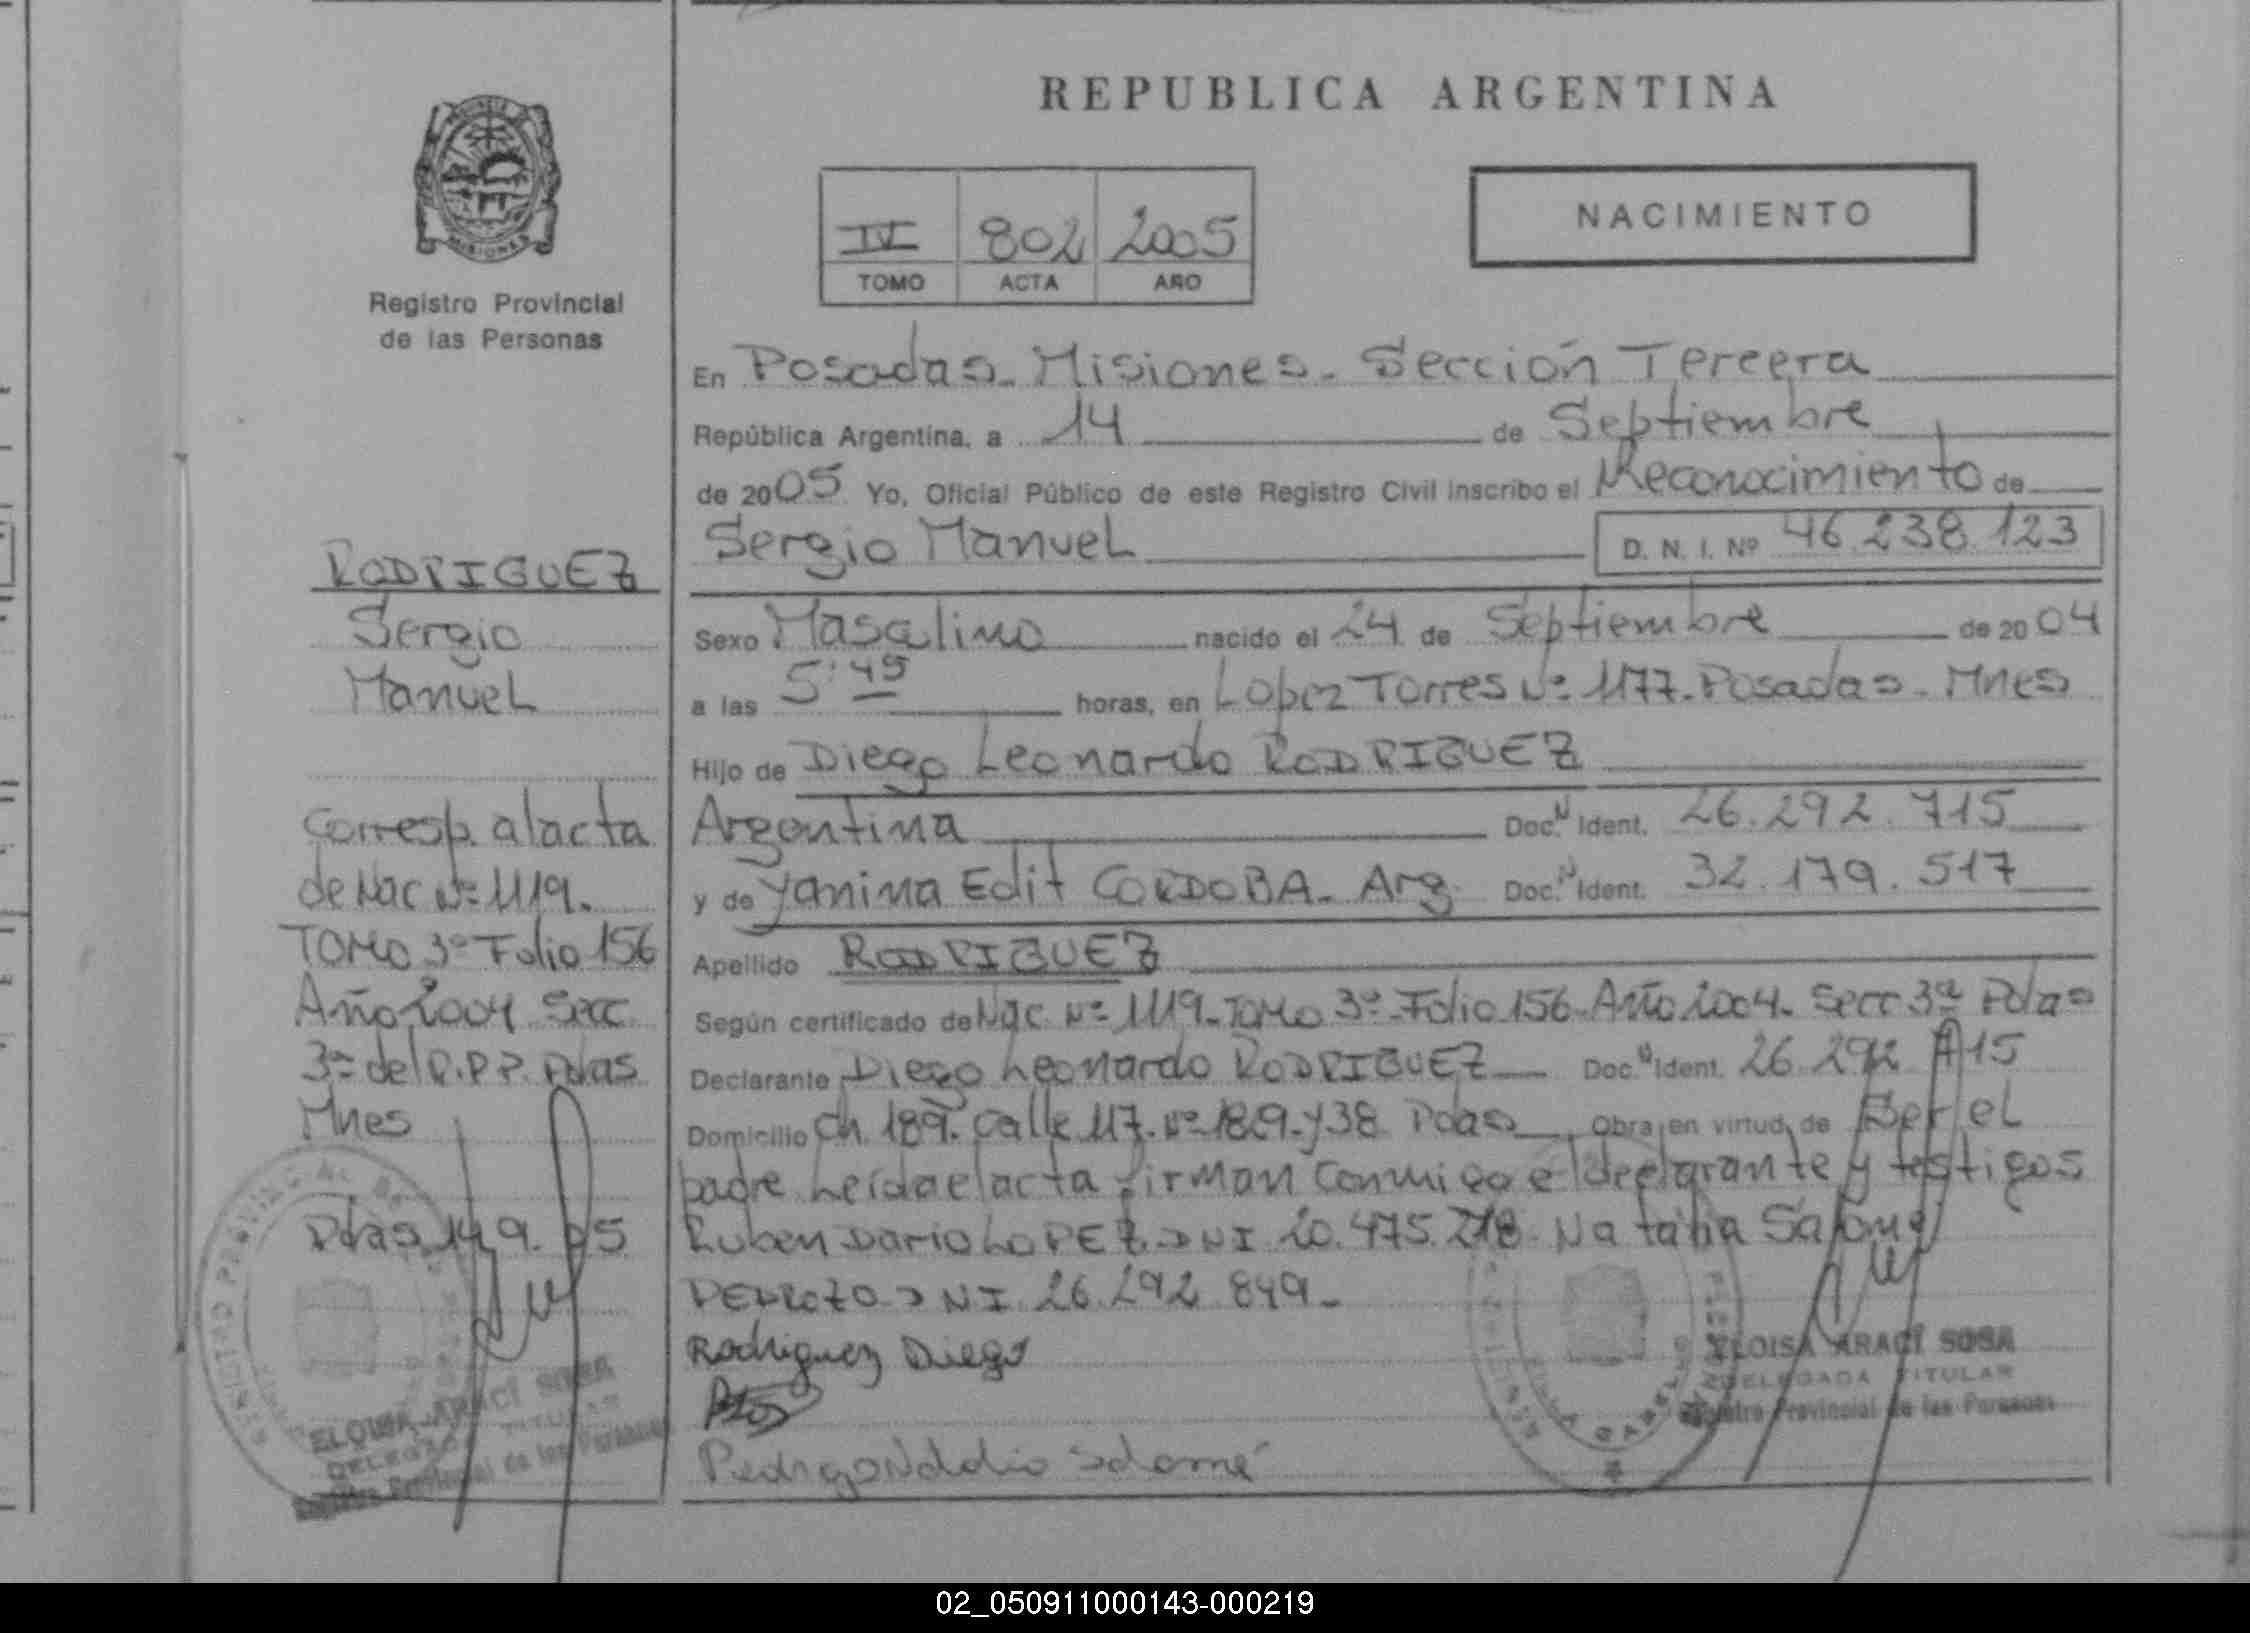 REPUBLICA ARGENTINA
MISIONES
Registro Provincial
de las Personas
IV 802 2005
TOMO ACTA AÑO
NACIMIENTO
En Posadas - Misiones - Sección Tercera
República Argentina, a 14 de Septiembre
de 2005 Yo, Oficial Público de este Registro Civil inscribo el Reconocimiento de
Sergio Manuel D. N. I. Nº 46.238.123
Sexo Masculino nacido el 24 de Septiembre de 2004
a las 5:45 horas, en Lopez Torres Nº 1177 - Posadas - Mnes
Hijo de Diego Leonardo RODRIGUEZ
Argentina Doc. Ident. 26.292.715
y de Yanina Edit CORDOBA - Arg. Doc. Ident. 32.179.517
Apellido RODRIGUEZ
Según certificado de Nac Nº 1119 - Tomo 3º - Folio 156 - Año 2004 - Secc 3ª Pdas
Declarante Diego Leonardo RODRIGUEZ Doc. Ident. 26.292.715
Domicilio Ch 189. Calle 117. Nº 189. y 38 Pdas Obra en virtud de Ser el
padre Leída el acta firman conmigo el declarante y testigos
Ruben Dario LOPEZ DNI 20.475.218 Natalia Salome
PEDROZO DNI 26.292.849 -
Rodriguez Diego
Salomé
ELOISA ARACÍ SOSA
DELEGADA TITULAR
Registro Provincial de las Personas
RODRIGUEZ
Sergio
Manuel
Corresp. al acta
de Nac Nº 1119.
TOMO 3º Folio 156
Año 2004 Secc
3ª del R.P.P. Pdas
Mnes
Pdas 14. 9. 05
ELOISA ARACÍ SOSA
DELEGADA TITULAR
Registro Provincial de las Personas
02_050911000143-000219